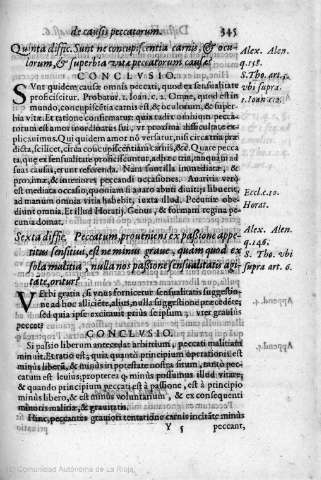 de causis peccatorum. 345
Quinta diffic. Sunt ne concupiscentia carnis, & ocu-
lorum, & superbia vitæ peccatorum causæ?
CONCLVSIO.
SVnt quidem causæ omnis peccati, quod ex sensualitate
proficiscitur. Probatur. 1. Ioan. 2. Omne, quod est in
mundo, concupiscētia carnis est, & ocūlorum, & super-
bia vitæ. Et ratione confirmatur: quia
torum est amor inordinatus sui, vt proximā
mus. Qui quidem amor nō versatur, nisi circa tria præ
dicta, scilicet, circa concupiscentiam carnis, &c. Quare pecca
ta, quæ ex sensualitate proficiscuntur, ad hæc tria, tanquā ad
suas causas, erunt referenda. Nam
proxima, & interiores peccandi occasiones. Auaritia verò
est mediata occasio, quoniam si auaro abūdē diuitiæ
ad manum omnia vitia habebit, iuxta illud. Pecuniæ obe-
diunt omnia. Et illud Horatij. Genus, & formam regina pe-
cunia donat.
Sexta diffic. Peccatum proueniens ex passione appe-
titus sensitiui, est ne minus graue, quam quod ex
sola malitia, nulla nos passione sensualitatis agi-
tāte, oritur?
VErbi gratia, si vnus fornicetur sensualitatis suggestio-
ne ad hoc allicięte, alius, nulla suggestione præcedēte,
sed quia ipse excitauit prius seipsum, vter grauius
peccat?
CONCLVSIO.
Si passio liberum antecedat arbitrium, peccati malitiam
minuit. Et ratio est, quia quantò principium operationis est
minùs liberū, & minus in potestate nostra situm, tantò pec-
catum est leuius, propterea q minus possumus illud vitare,
& quando principium peccati est à passione, est à principio
minùs libero, & est minùs voluntarium, & ex consequenti
minoris malitiæ, & grauitatis.
Hinc, peccantes grauiori tentatione carnis incitatæ minus
Y 5 peccant,
Alex. Alen.
q. 158.
S. Tho. art. 5.
vbi supra.
1. Ioan. c. 2.
Eccl. c. 10.
Horat.
Alex. Alen.
q. 146.
S. Tho. vbi
supra art. 6.
© Comunidad Autónoma de La Rioja